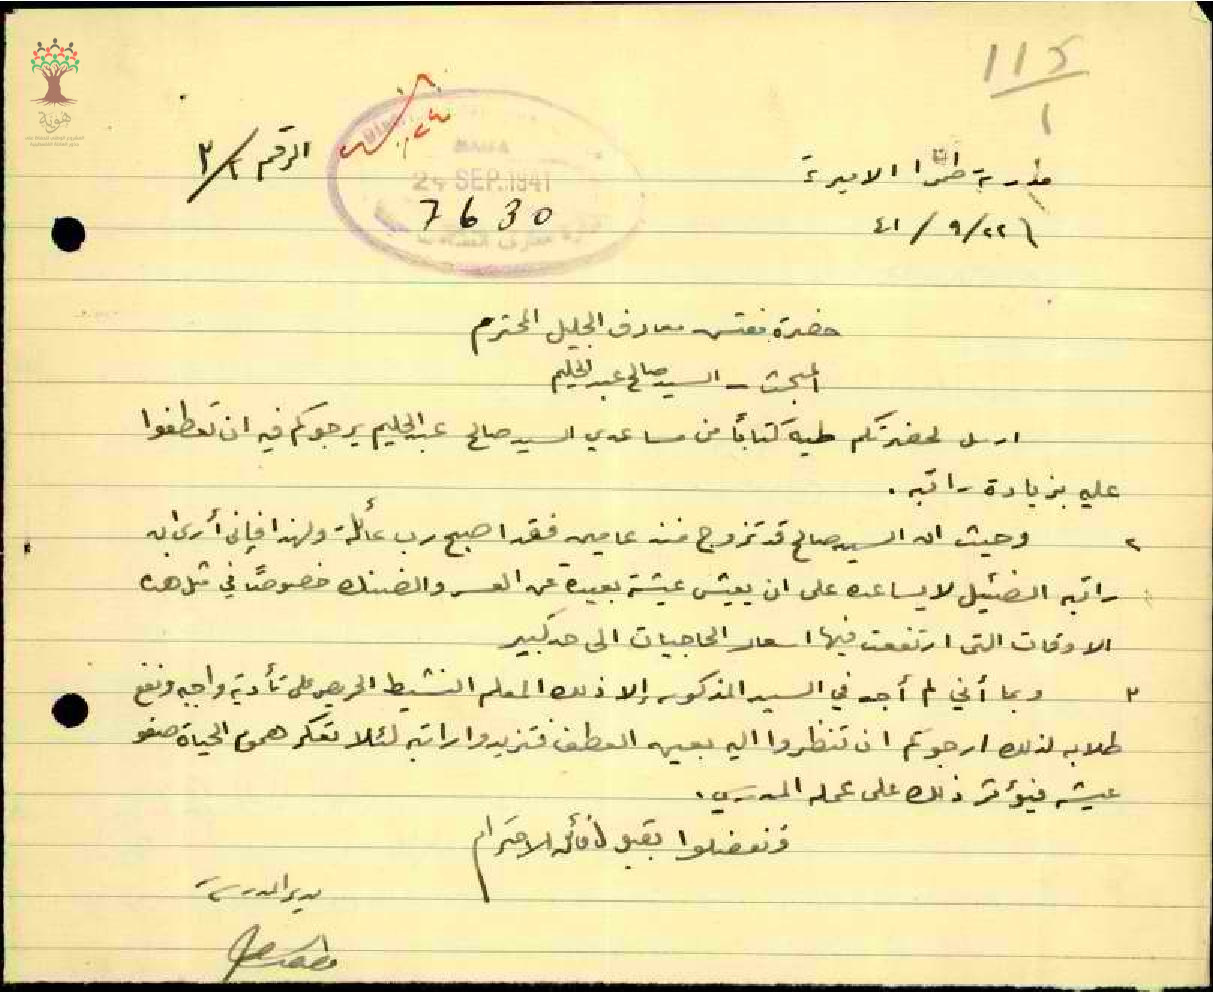 115
1
هوية
مدرسة طمرا الاميرية
الرقم ٢/٣
24 SEP. 1941
7630
٤١/٩/٢٢
حضرة مفتش معارف الجليل المحترم
المبحث - السيد صالح عبد الحليم
ارسل لحضرتكم طيه كتاباً من مساعدي السيد صالح عبد الحليم يرجوكم فيه ان تعطفوا
عليه بزيادة راتبه .
٢ وحيث ان السيد صالح قد تزوج منذ عامين فقد اصبح رب عائلة ولهذا فإني أرى ان
راتبه الضئيل لا يساعده على ان يعيش عيشة بعيدة عن العسر والضنك خصوصاً في مثل هذه
الاوقات التي ارتفعت فيها اسعار الحاجيات الى حد كبير
٣ وبما أنني لم أجد في السيد المذكور إلا ذلك المعلم النشيط الحريص على تأدية واجبه ونفع
طلابه لذلك ارجوكم ان تنظروا اليه بعين العطف فتزيدوا راتبه لئلا تعكر هموم الحياة صفو
عيشه فيؤثر ذلك على عمله المدرسي .
وتفضلوا بقبول فائق الاحترام
مدير المدرسة